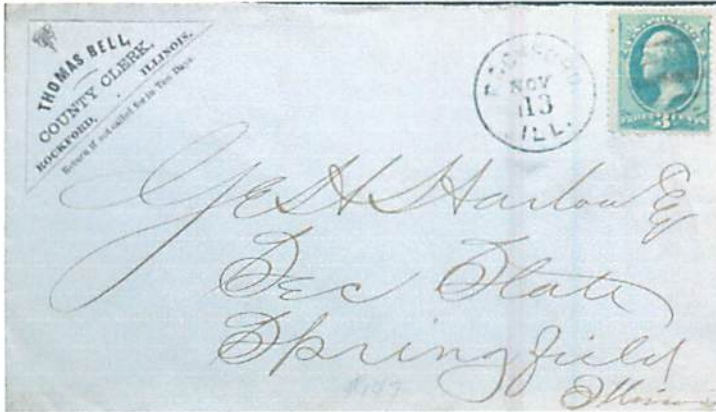 THOMAS BELL,
COUNTY CLERK,
ROCKFORD, ILLINOIS.
Return if not called for in Ten Days.
ROCKFORD
NOV
13
ILL.
THREE 3 CENTS
Geo H Harlow Esq
Sec State
Springfield
Illinois